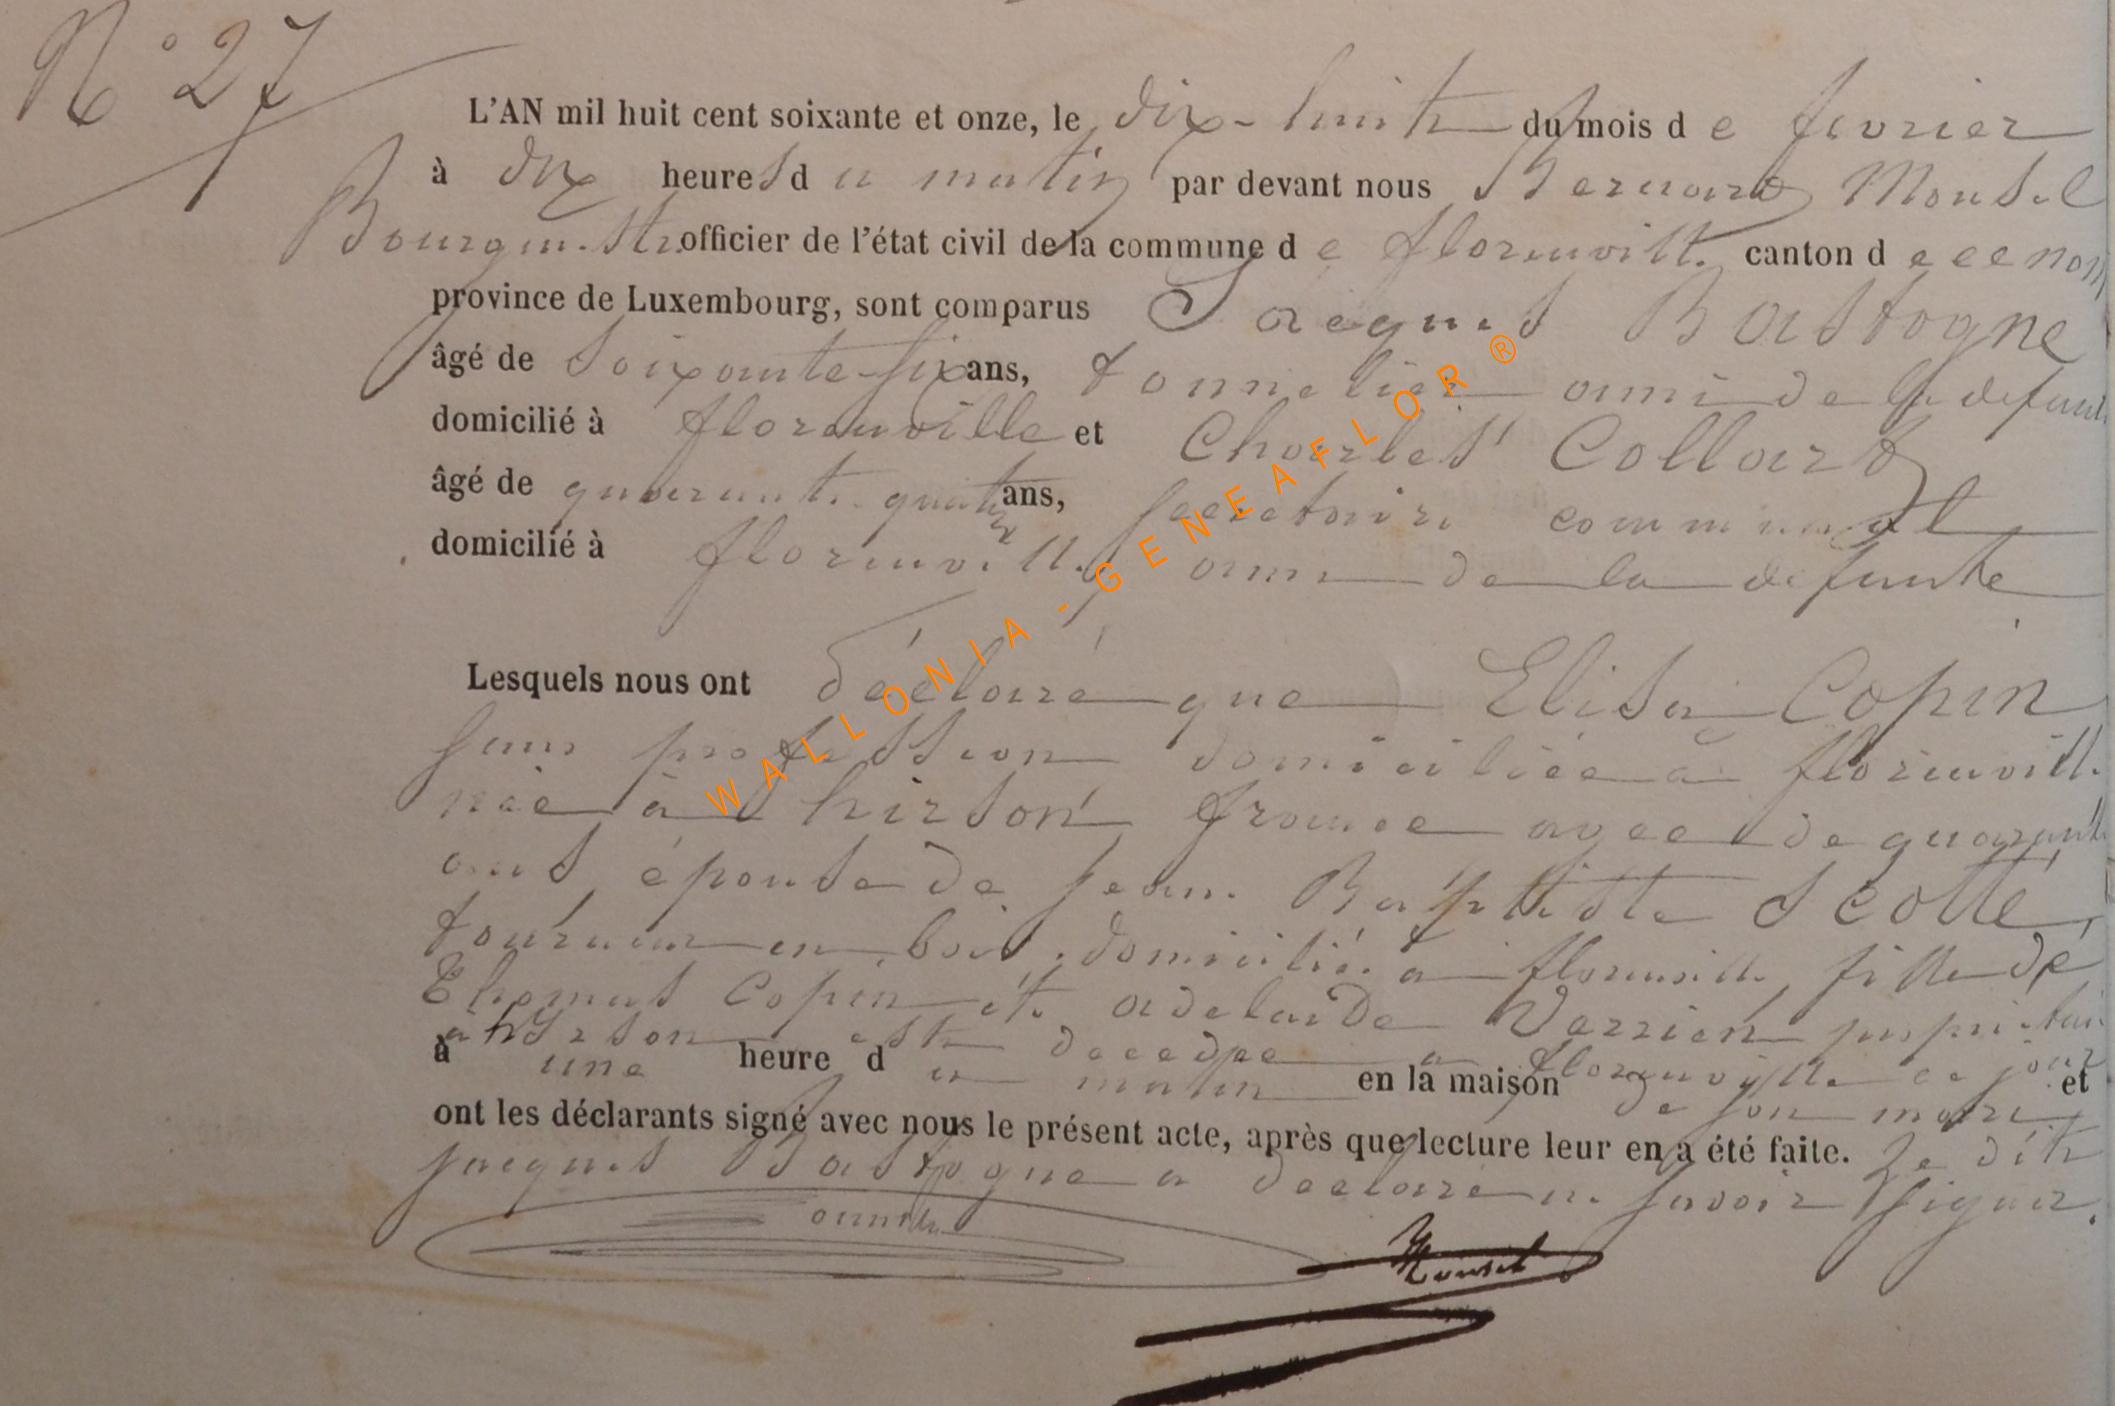 N° 27
L'AN mil huit cent soixante et onze, le dix-huit du mois de fevrier
à dix heures du matin par devant nous Bernard Monsel
Bourgmestre officier de l'état civil de la commune de florenville canton de ce nom
province de Luxembourg, sont comparus Jacques Bastogne
âgé de soixante-six ans, tonnelier ami de la defunte
domicilié à florenville et Charles Collard
âgé de quarante quatre ans, secretaire communal
domicilié à florenville ami de la defunte
Lesquels nous ont déclaré que Elisa Copin
sans profession domiciliée à florenville
née à hirson france agee de quarante
ans épouse de jean Baptiste Scotté
tourneur en bois domicilié à florenville fille de
Thomas Copin et adelaide Verrien proprietaires
à hirson est decedee a florenville ce jour
à une heure du matin en la maison de son mari et
ont les déclarants signé avec nous le présent acte, après que lecture leur en a été faite. Le dit
jacques Bastogne a declaré ne savoir signer.
Monsel
WALLONIA - GENEAFLOR ®